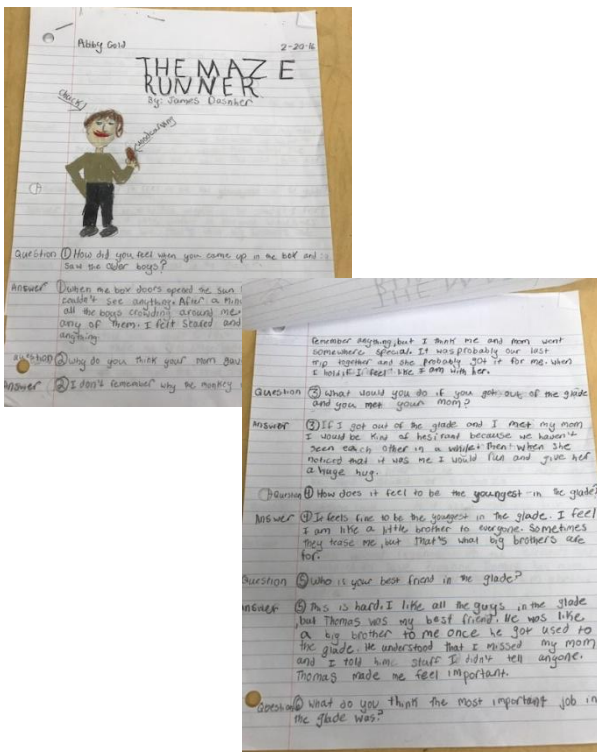 Abby Gold
2-20-16
THE MAZE
RUNNER
By: James Dashner
Chuck
woodcarving
Question ① How did you feel when you came up in the box and
saw the older boys?
Answer ① when the box doors opened the sun
couldn't see anything. After a
all the boys crowding around me.
any of them. I felt scared and
anything.
question ② Why do you think your mom gav
Answer ② I don't remember why the monkey
remember anything, but I think me and mom went
somewhere special. It was probably our last
trip together and she probably got it for me. when
I hold it I feel like I am with her.
Question ③ What would you do if you got out of the glade
and you met your mom?
Answer ③ If I got out of the glade and I met my mom
I would be kind of hesitant because we haven't
seen each other in a while. Then when she
noticed that it was me I would run and give her
a huge hug.
Question ④ How does it feel to be the youngest in the glade?
Answer ④ It feels fine to be the youngest in the glade. I feel
I am like a little brother to everyone. Sometimes
they tease me, but that's what big brothers are
for.
Question ⑤ Who is your best friend in the glade?
Answer ⑤ This is hard. I like all the guys in the glade
, but Thomas was my best friend. He was like
a big brother to me once he got used to
the glade. He understood that I missed my mom
and I told him stuff I didn't tell anyone.
Thomas made me feel important.
Question ⑥ What do you think the most important job in
the glade was?